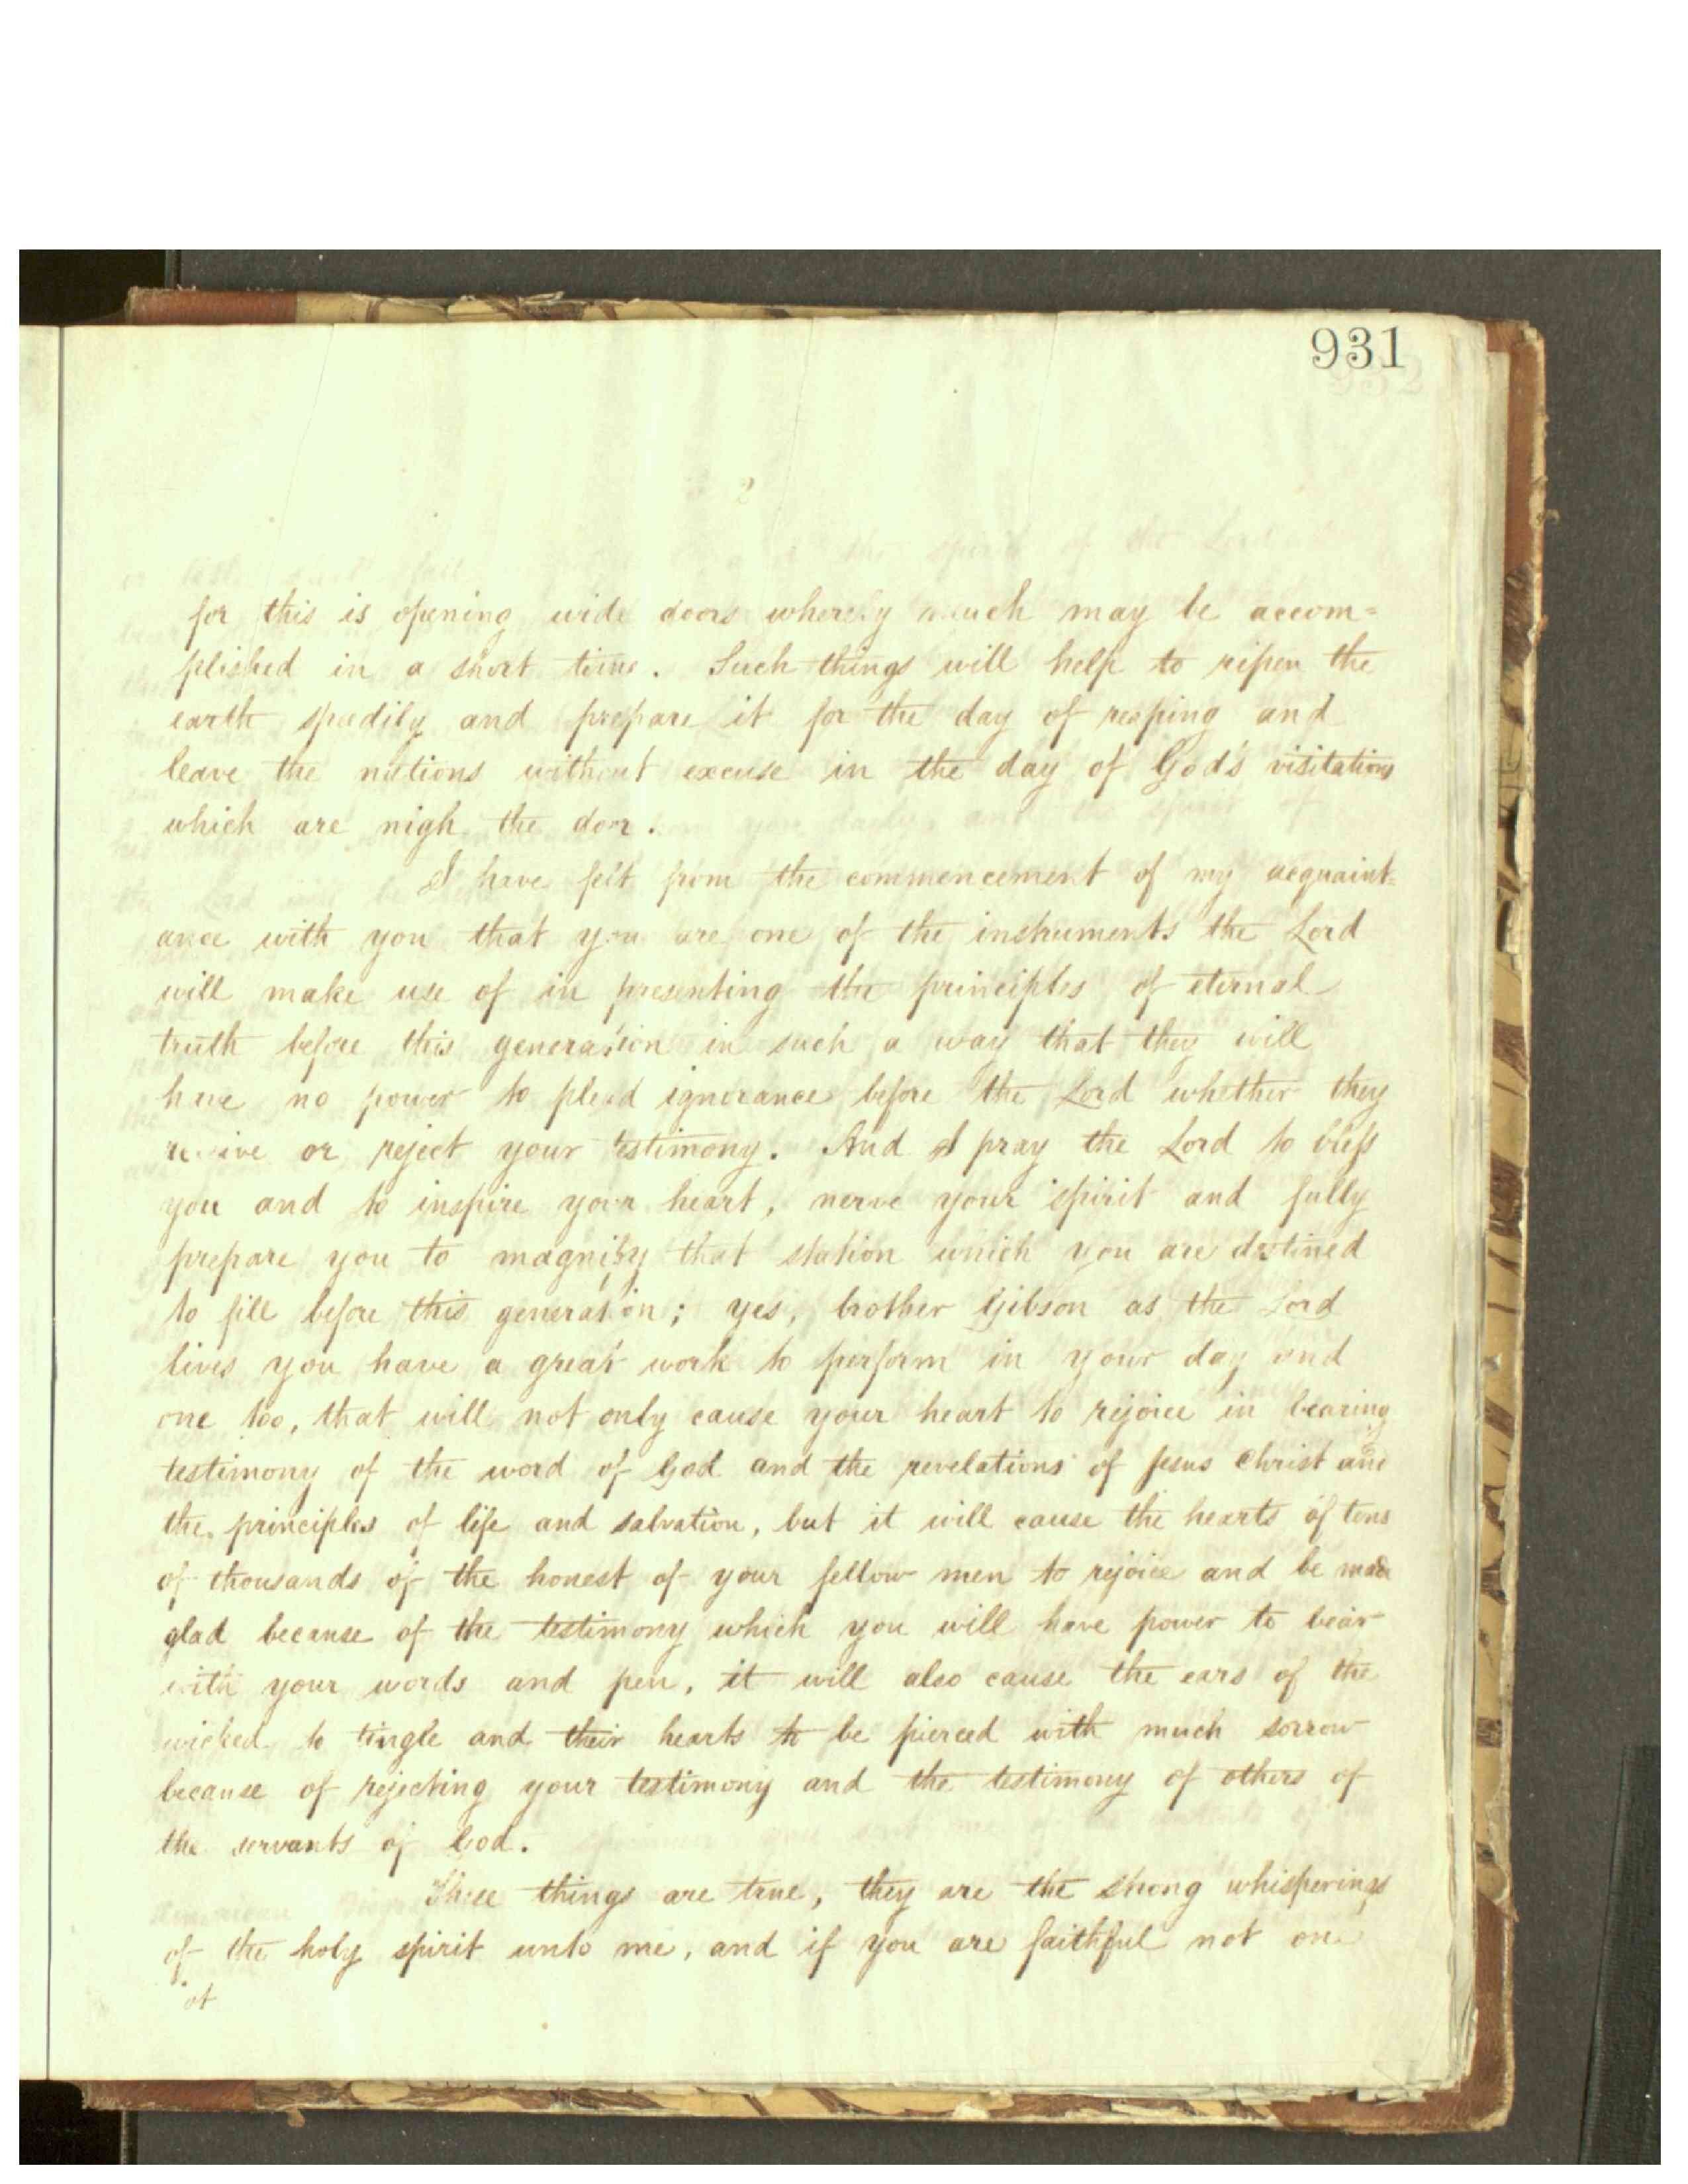 931
2
for this is opening wide doors whereby much may be accom=
plished in a short time. Such things will help to ripen the
earth speedily and prepare it for the day of reaping and
leave the nations without excuse in the day of God's visitations
which are nigh the door.
I have felt from the commencement of my acquaint=
ance with you that you are one of the instruments the Lord
will make use of in presenting the principles of eternal
truth before this generation in such a way that they will
have no power to plead ignorance before the Lord whether they
receive or reject your testimony. And I pray the Lord to bless
you and to inspire your heart, nerve your spirit and fully
prepare you to magnify that station which you are destined
to fill before this generation; yes, brother Gibson as the Lord
lives you have a great work to perform in your day and
one too, that will not only cause your heart to rejoice in bearing
testimony of the word of God and the revelations of Jesus Christ and
the principles of life and salvation, but it will cause the hearts of tens
of thousands of the honest of your fellow men to rejoice and be made
glad because of the testimony which you will have power to bear
with your words and pen, it will also cause the ears of the
wicked to tingle and their hearts to be pierced with much sorrow
because of rejecting your testimony and the testimony of others of
the servants of God.
These things are true, they are the strong whisperings
of the holy spirit unto me, and if you are faithful not one